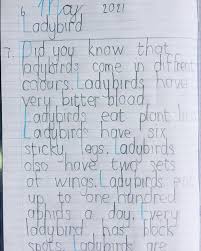 6 May 2021
Ladybird
7. Did you know that
ladybirds come in different
colours. Ladybirds have
very bitter blood.
Ladybirds eat plant lice
Ladybirds have six
sticky legs. Ladybirds
also have two sets
of wings. Ladybirds eat
up to one hundred
aphids a day. Every
ladybird has black
spots. Ladybirds are